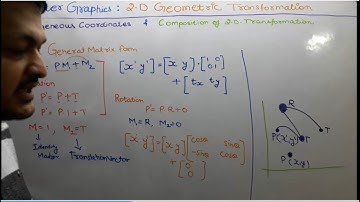 ter Graphics: 2-D Geometric Transformation
geneous Coordinates & Composition of 2D-Transformation
General Matrix Form
= PM1 + M2
P' = P + T
P' = P·I + T
M1 = I, M2 = T
Identity Matrix
Translation Vector
[x' y'] = [x y]·[1 0
0 1]
+ [tx ty]
Rotation
P' = P·R + 0
M1 = R, M2 = 0
[x' y'] = [x y] [cosθ sinθ
-sinθ cosθ]
+ [0
0]
R
P'(x', y')
T
T
P(x,y)